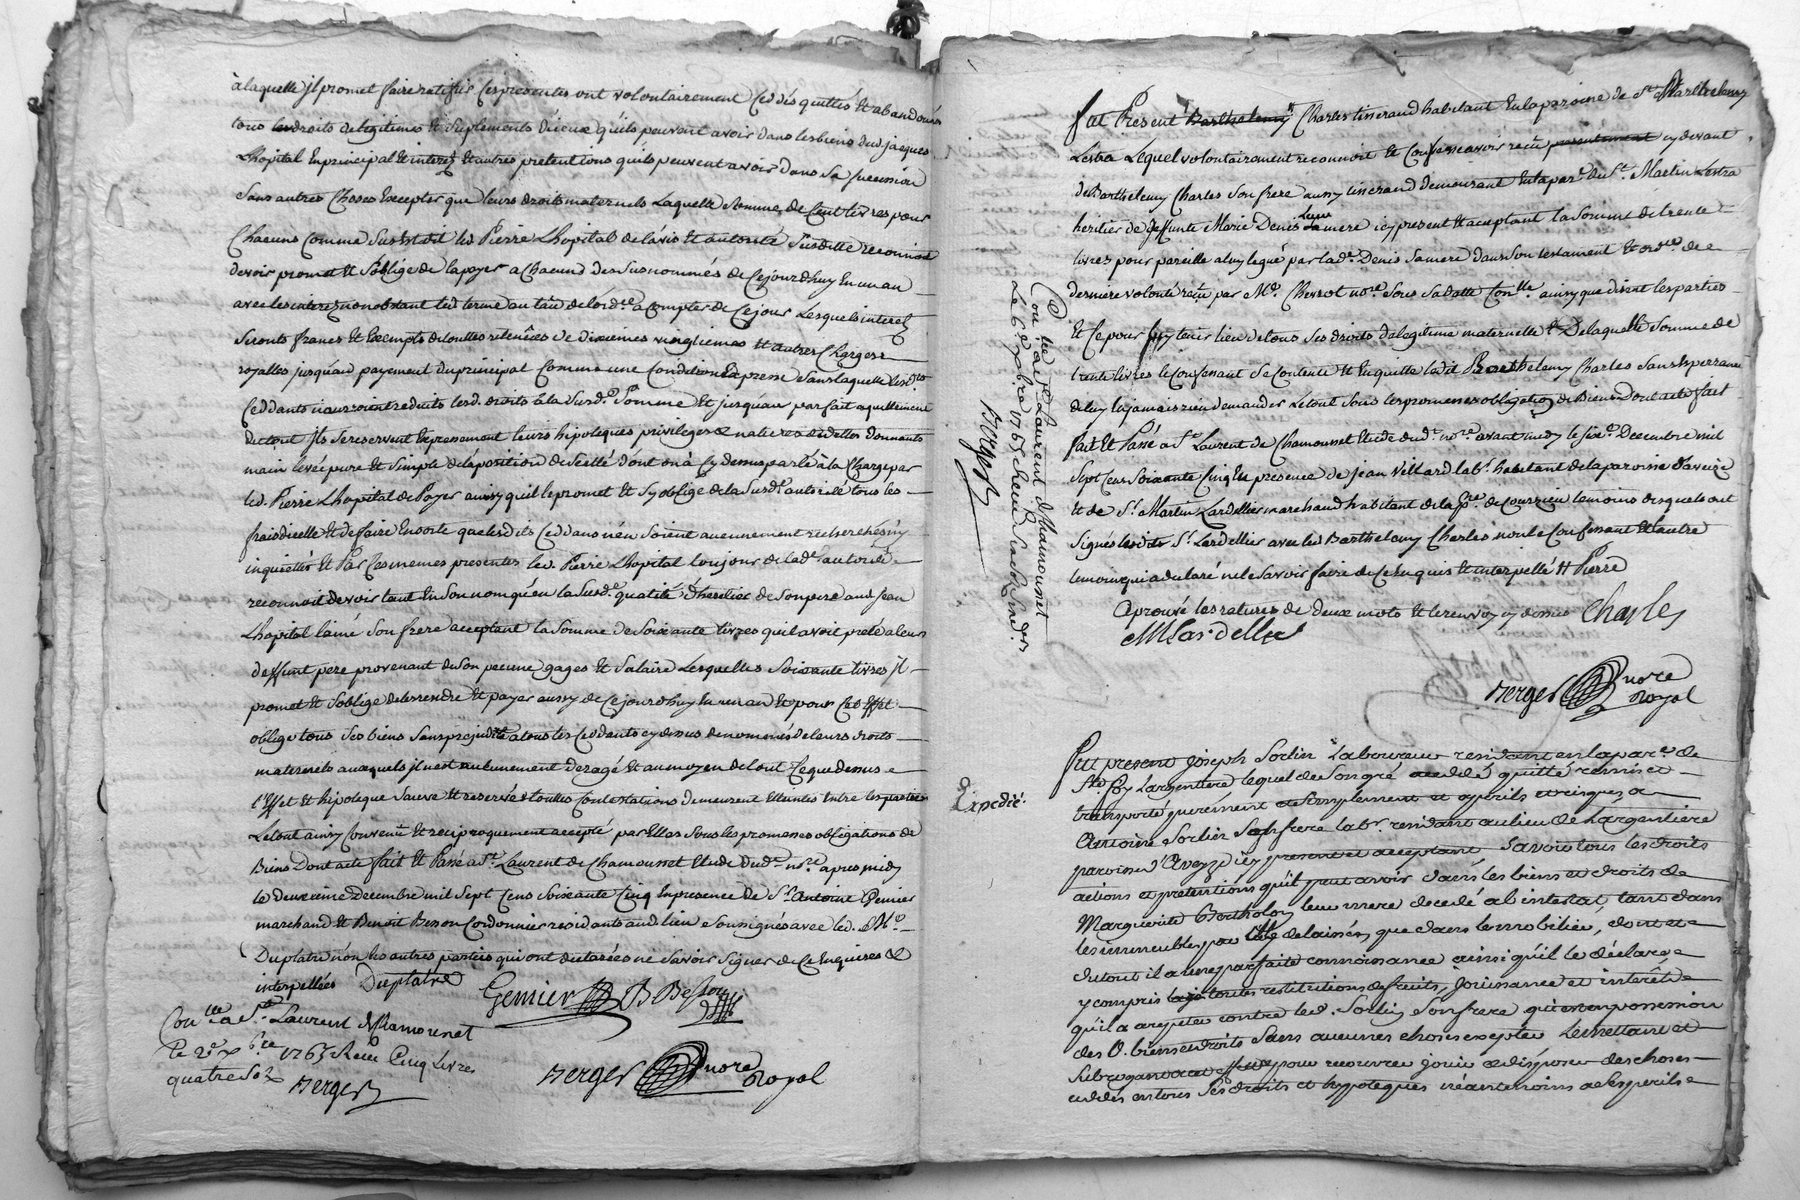 à laquelle il promet faire ratifier ces presentes ont volontairement ceddés quittés et abandonnés
tous droits de legitime et suplements d'iceux qu'ils peuvent avoir dans les biens dud jacques
Lhopital en principal et interez et autres pretentions qu'ils peuvent avoir dans sa succession
sans autres choses excepter que leurs droits maternels laquelle somme de cent livres pour
chacuns comme sus est dit led Pierre Lhopital de l'avis et autorité susditte reconnoit
devoir promet et s'oblige de la payer a chacun des susnommés de cejourdhuy en un an
avec les interez nonobstant led terme au taux de l'ordce a compter de ce jour lesquels interez
seronts francs et exempts de touttes retenües de dixiemes vingtiemes et autres charges
royalles jusqu'au payement du principal comme une condition expresse sans laquelle lesdts
ceddants n'auroient reduits lesd. droits a la susd. somme et jusqu'au parfait aquittement
du tout ils se reservent expressement leurs hipoteques privileges et
main levée pure et simple de l'aposition de scellé dont on a cy dessus parlé à la charge par
led. Pierre Lhopital de payer ainsy qu'il le promet et s'y oblige de la susde autorité tous les
frais d'icelle et de faire en sorte que lesdits ceddans n'en soient aucunement recherchés ny
inquietés et par ces memes presentes led. Pierre Lhopital toujours de lade autorité
reconnoit devoir tant en son nom qu'en la susde qualité d'heritier de son pere aud jean
Lhopital lainé son frere acceptant la somme de soixante livres qu'il avoit preté a leur
deffunt pere provenant de son pecune gages et salaire lesquelles soixante livres il
promet et s'oblige de les rendre et payer aussy de cejourdhuy en un an et pour cet effet
oblige tous ses biens sans prejudice a tous les ceddants cy dessus denommés de leurs droits
maternels auxquels il n'est aucunement derogé et au moyen de tout ce que dessus
l'effet et hipoteque sauve et reservés touttes contestations demeurent eteintes entre les parties
Le tout ainsy convenu et reciproquement accepté par elles sous les promesses obligations de
Biens Dont acte fait et Passé a St. Laurent de Chamousset etude dudt nore apres midy
le deuxieme Decembre mil sept cens soixante cinq en presence de Sr. Antoine Gemier
marchand et Benoit Besson Cordonnier residants aud. lieu soussignés avec led. Me
Duplatre non les autres parties qui ont declarées ne savoir signer de ce enquises et
interpellées Duplâtre Gemier B Besson
Conlle a St. Laurent de Chamousset
le 2e xbre 1765 Reçu Cinq Livres
quatre sols
Berger
Berger nore
Royal
fut Présent Barthelemy Charles tisserand habitant en la paroisse de St. Barthelemy
Lestra Lequel volontairement reconnoit et confesse avoir reçu presentement cy devant
de Barthelemy Charles son frere aussy tisserand demeurant en la par. du St. Martin Lestra
heritier de deffunte Marie Denis Leur La mere icy present et aceptant la somme de trente
livres pour pareille a luy legué par lade. Denis sa mere dans son testament et ordce. de
derniere volonté reçu par Me. Chevrot nore. sous sa datte Conllé. ainsy que disent les parties
et ce pour luy tenir lieu de tous ses droits de legitime maternelle De laquelle somme de
trente livres le confessant se contente et en quitte ledit Barthelemy Charles sans esperance
de luy en jamais rien demander Le tout sous les promesses obligation de Biens Dont acte fait
fait et Passé a St. Laurent de Chamousset Etude dudt. nore. avant midy le sixe. Decembre mil
sept cens soixante cinq en presence de jean Villard labr. habitant de la paroisse d'aveize
et de Sr. Martin Lardellier marchand habitant de la pse. de courzieu temoins desquels ont
signés lesdits Sr. Lardellier avec led Barthelemy Charles non le Confessant et l'autre
temoin qui a declaré ne le savoir faire de ce enquis et interpellé # Pierre
Aprouvé les ratures de deux mots et le renvoy cy dessus Charles
MLardellier
Berger nore
Royal
Conlle a St. Laurent de Chamousset
Le 6e xbre 1765 Reçu
Berger
Expedié.
fut present joseph Sorlin Laboureur residant en la pare. de
Ste foy Largentiere lequel de son gré a cedé quitté remis et
transporté purement et simplement et a perils et risques, a
Antoine Sorlin son frere labr. residant au lieu de Largentiere
paroisse d'Aveyze icy present et acceptant Savoir tous les droits
actions et pretentions qu'il peut avoir dans les biens et droits de
Marguerite Bertholon leur mere decedé ab intestat, tant dans
les immeubles par elle delaissés, que dans le mobilier, dont et
du tout il a une parfaite connoissance ainsi qu'il le déclare
y compris touttes restitutions de fruits, jouissance et interêts
qu'il a a repeter contre led. Sorlin son frere qui est en possession
des d. biens et droits sans aucunes choses excepter Le mettant et
subrogeant a cet effet pour recouvrer jouir et disposer des choses
cedées en tous ses droits et hypoteques néantmoins a ses perils